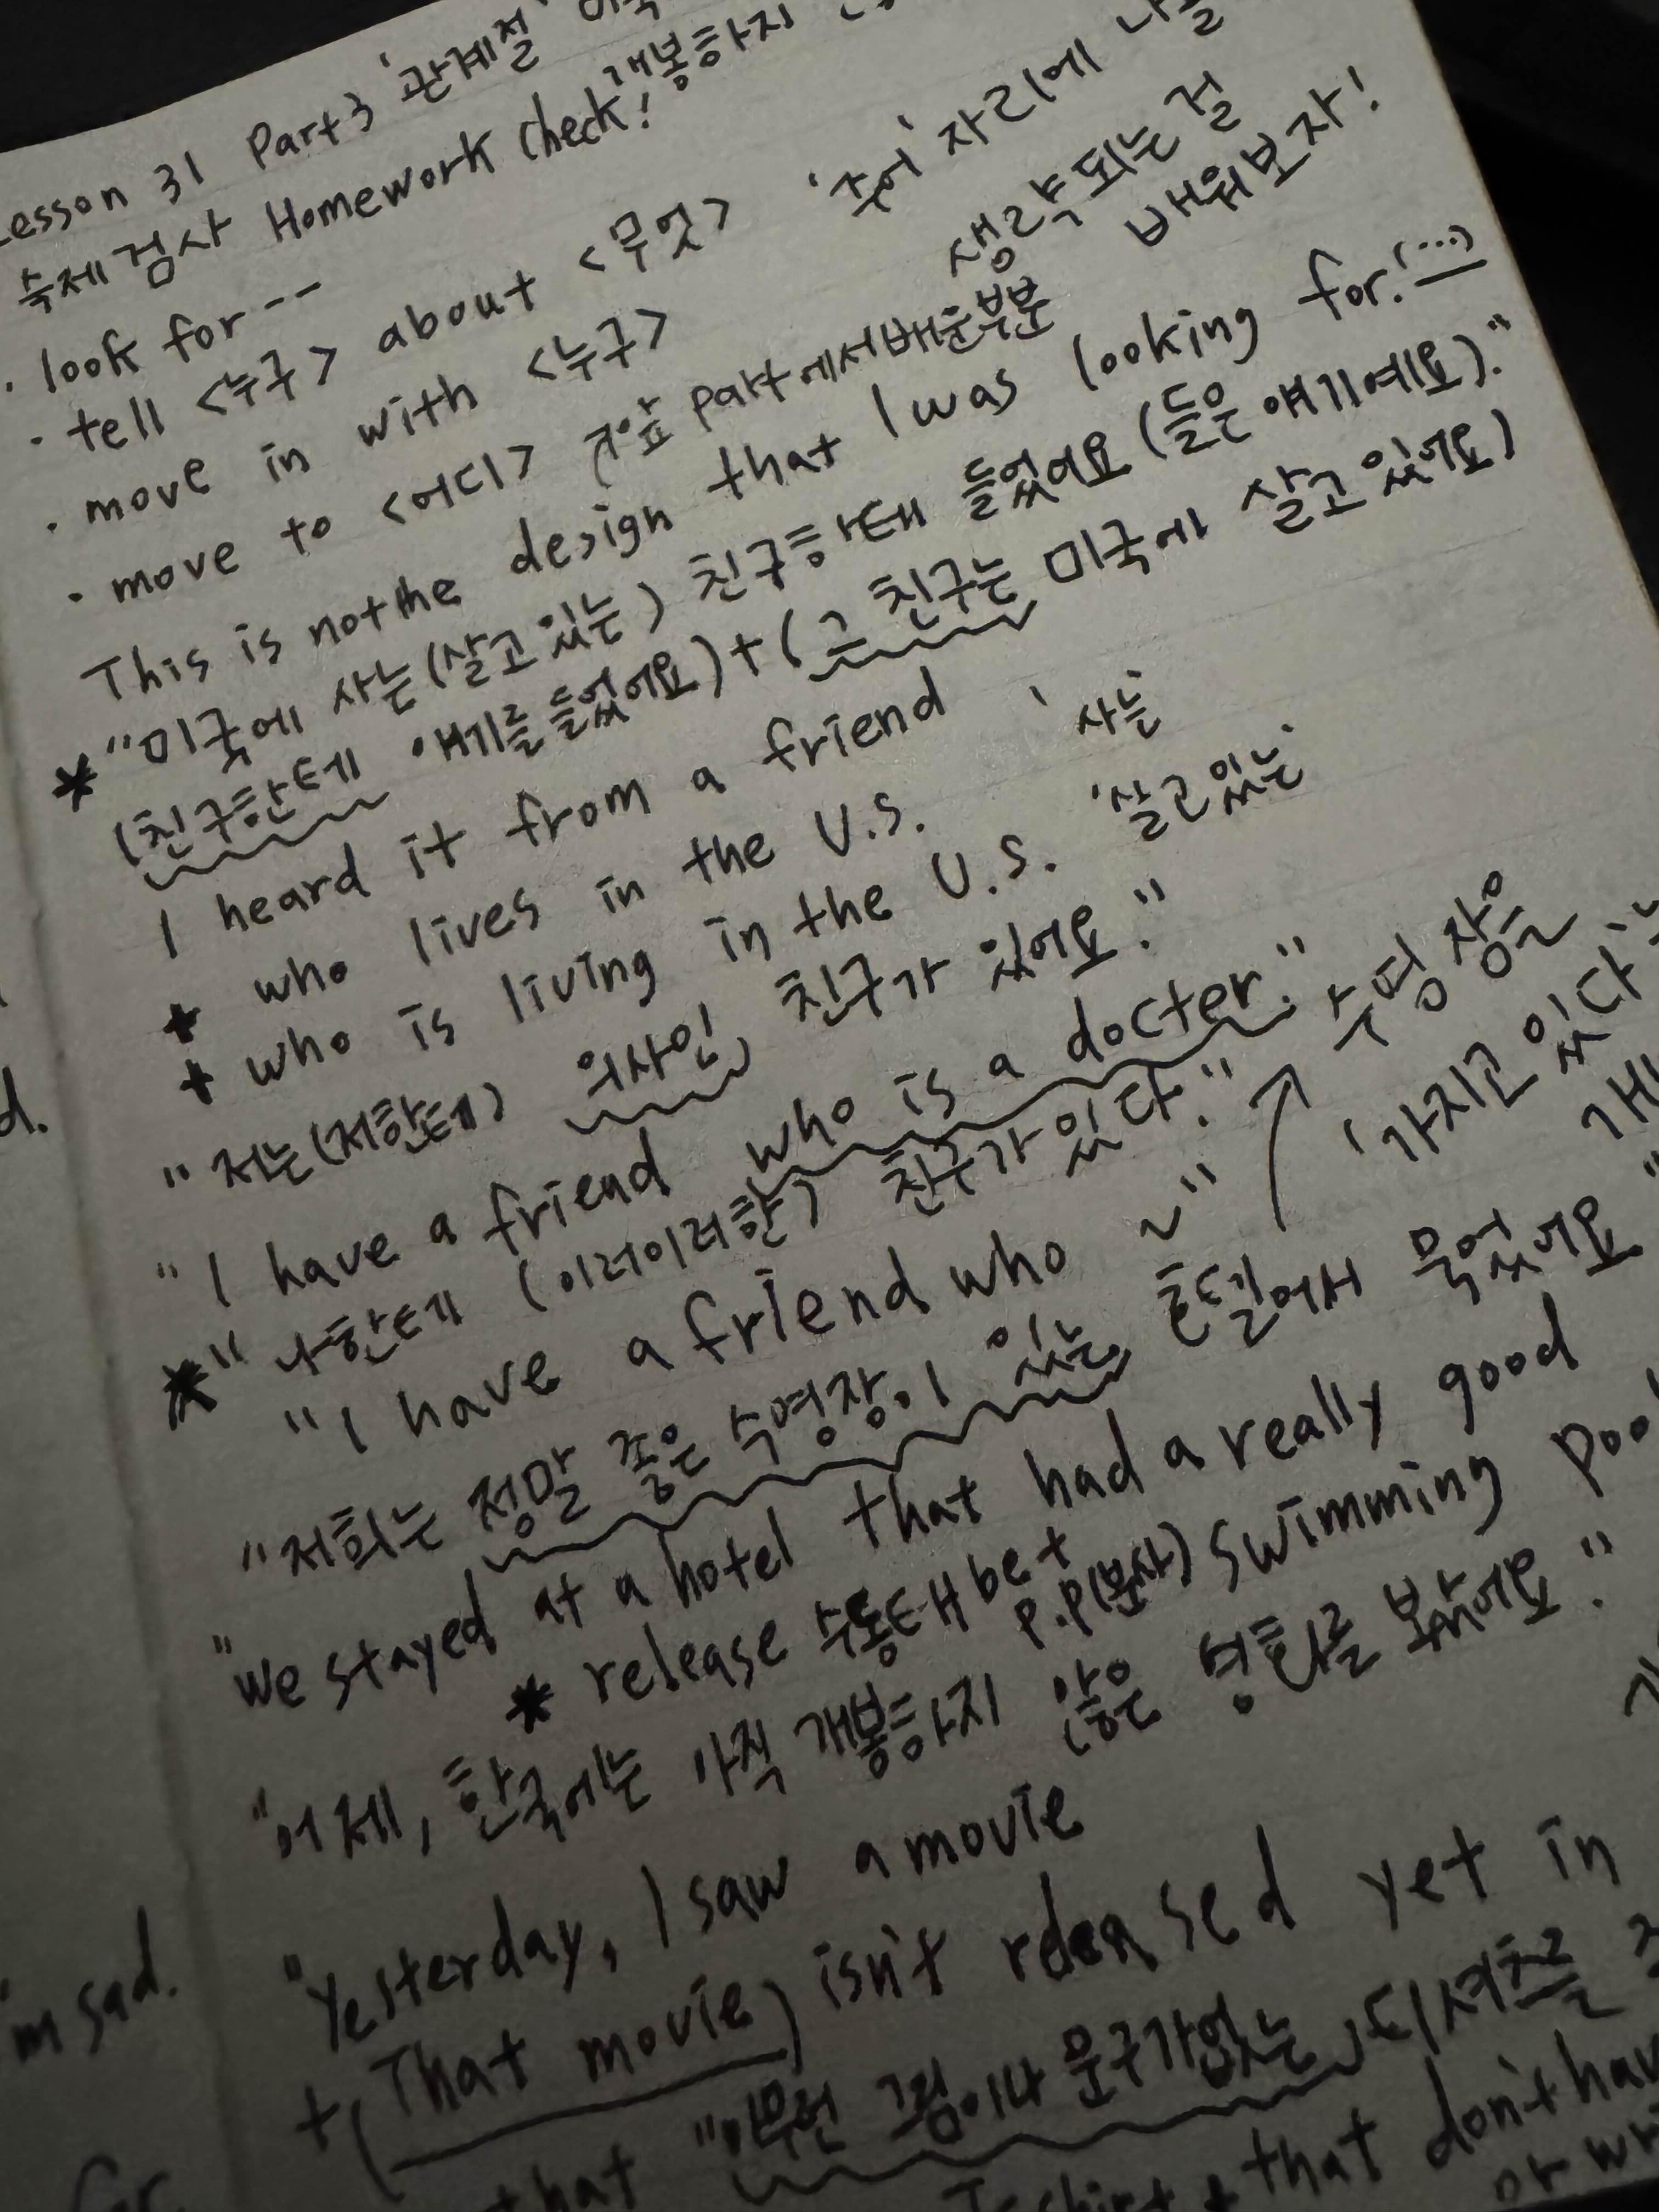 Lesson 31 Part 3 '관계절'
숙제 검사 Homework check! '개봉하지
· look for --
· tell <누구> about <무엇> '주어' 자리에 나올
생략되는 걸
· move in with <누구> 배워보자!
· move to <어디> part에서 배운 부분
This is not the design that I was looking for.(...)
* "미국에 사는(살고 있는) 친구한테 들었어요 (들은 얘기예요)."
(친구한테 얘기를 들었어요)+(그 친구는 미국에 살고 있어요)
I heard it from a friend
+ who lives in the U.S. '사는'
+ who is living in the U.S. '살고 있는'
"저는(저한테) 의사인 친구가 있어요."
"I have a friend who is a docter."
*" 나한테 (이러이러한) 친구가 있다."
"I have a friend who ~" 수영장은
'가지고 있다'
"저희는 정말 좋은 수영장이 있는 호텔에서 묵었어요"
"We stayed at a hotel that had a really good
swimming pool
* release 수동태 be +
p.p(분사)
"어제, 한국에는 아직 개봉하지 않은 영화를 봤어요."
"Yesterday, I saw a movie
+(That movie) isn't released yet in
that "아무런 그림이나 문구가 없는 티셔츠를
T-shirt + that don't have
or
d.
I'm sad.
for